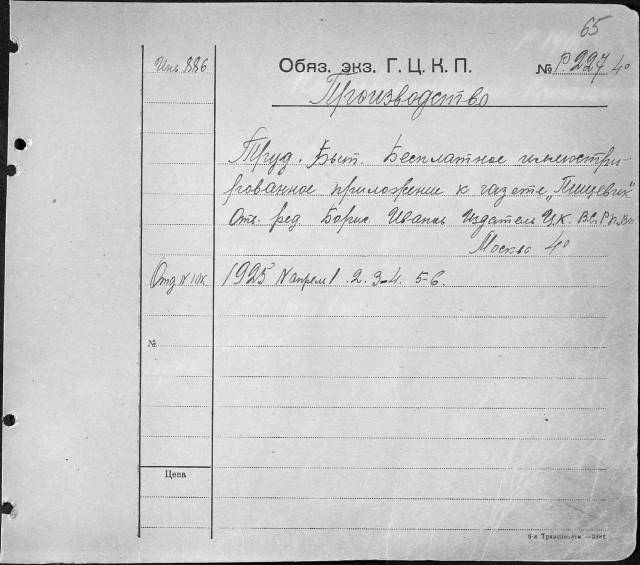 65
Инв. 886
Обяз. экз. Г. Ц. К. П.
№ Р. 227 4°
Производство
Труд. Быт. Бесплатное иллюстри-
рованное приложение к газете „Пищевик"
Отв. ред. Борис Иванов Издатель Ц.К. В.С.Р.П.
Москва 4°
Отд № 10к.
1925 № апрель 1. 2. 3-4. 5-6.
№
Цена